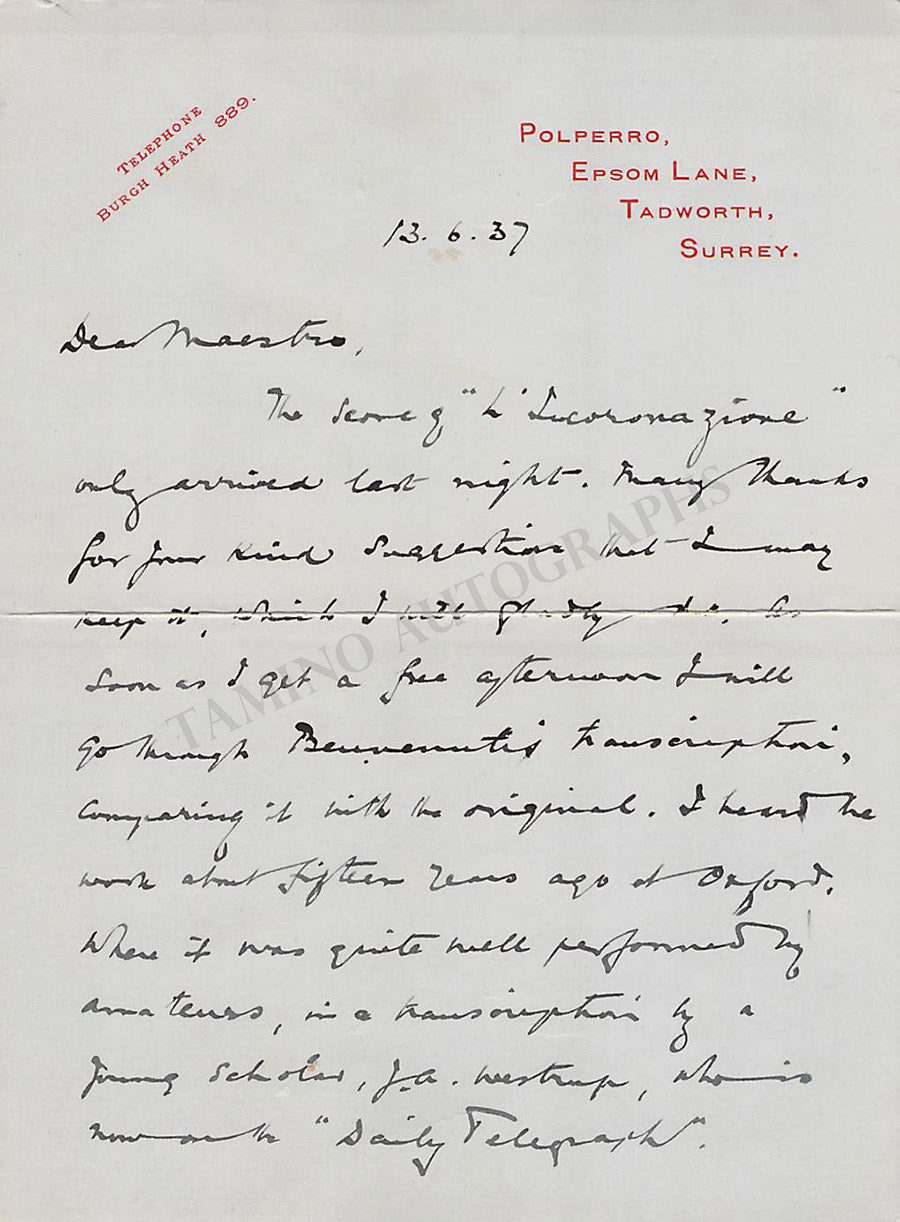 TELEPHONE
BURGH HEATH 889.
POLPERRO,
EPSOM LANE,
TADWORTH,
SURREY.
13. 6. 37
Dear Maestro,
The score of "L'Incoronazione"
only arrived last night. Many thanks
for your kind suggestion that I may
keep it, which I will gladly do. As
soon as I get a free afternoon I will
go through Benvenuti's transcription,
comparing it with the original. I heard the
work about fifteen years ago at Oxford,
when it was quite well performed by
amateurs, in a transcription by a
young scholar, J.A. Westrup, who is
now on the "Daily Telegraph".
TAMINO AUTOGRAPHS